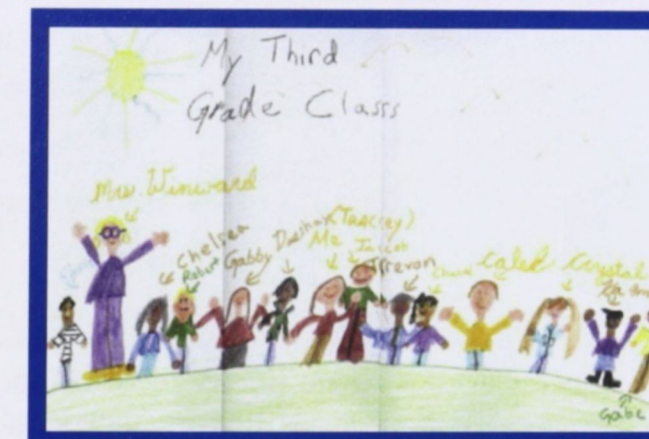 My Third
Grade Classs
Mrs. Winward
Chelsea
Robert
Gabby
(Tracey)
Me
Jacob
Trevon
Caleb
Crystal
Gabe